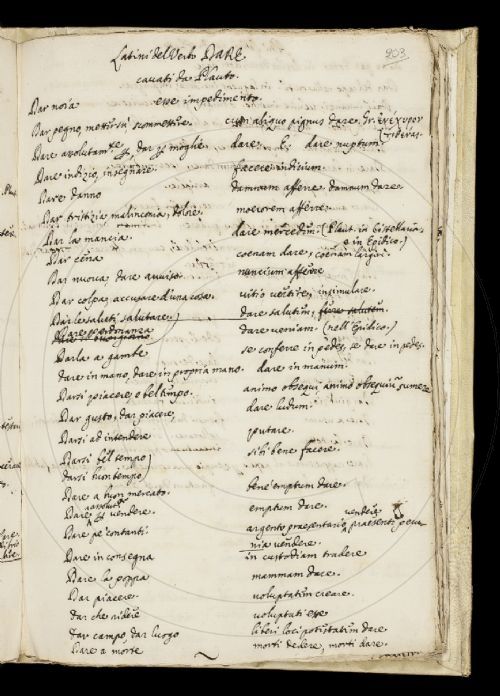 203
Latini del Verbo DARE
cavati da Plauto.
Dar noia esse impedimento.
Dar pegno, mettersù scommettere. cum aliquo pignus dare. Gr.
Dare assolutam.te, dar p moglie dare. dare nuptum.
Dare indizio, insegnare facere indicium.
Dare danno damnum afferre. damnum dare.
Dar tristizia, malinconia, dolore moerorem afferre.
Dar la mancia dare mercedem. (Plaut. in Cistellaria
e in Epidico.)
Dar cena coenam dare, coenam largiri.
Dar nuova, dare avviso nuncium afferre
Dar colpa, accusare d'una cosa. vitio vertere, insimulare.
Dar le saluti, salutare) dare salutem,
Dare perdonanza dare veniam (nell'Epidico.)
Darla a gambe se conferre in pedes, se dare in pedes.
dare in mano, dare in propria mano dare in manum.
Darsi piacere, o bel tempo. animo obsequi, animo obsequium sumere
Dar gusto, dar piacere, dare ludum.
Darsi ad intendere putare.
Darsi bel tempo) sibi bene facere.
darsi buon tempo
Dare a buon mercato. bene emptum dare.
Dare vendere. emptum dare.
Dare pe' contanti. argento praesentario vendere praesenti pecu
nia vendere.
Dare in consegna in custodiam tradere
Dare la poppa mammam dare.
Dar piacere voluptatem creare.
dar che ridere voluptati esse
dar campo, dar luogo liberi loci potestatem dare
Dare a morte morti dedere, morti dare.